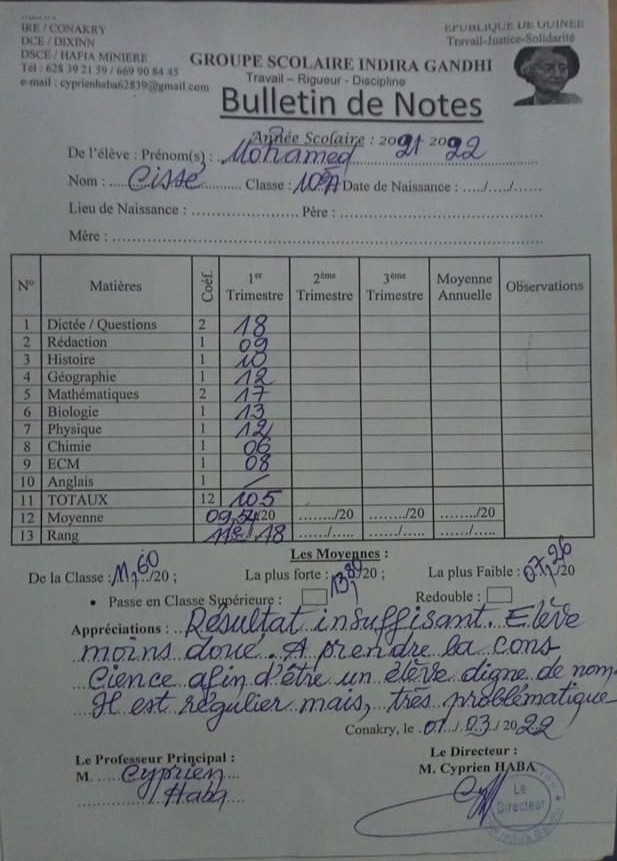 IRE / CONAKRY
DCE / DIXINN
DSCE / HAFIA MINIERE
Tél : 628 39 21 59 / 669 90 84 45
e-mail : cyprienhaba62839@gmail.com
EPUBLIQUE DE GUINEE
Travail-Justice-Solidarité
GROUPE SCOLAIRE INDIRA GANDHI
Travail – Rigueur - Discipline
Bulletin de Notes
Année Scolaire : 2021 2022
De l'élève : Prénom(s) : Mohamed
Nom : Cisse Classe : 10èA Date de Naissance : ...../...../.....
Lieu de Naissance : ........................ Père : ........................
Mère : ........................
N° Matières Coéf. 1er Trimestre 2ème Trimestre 3ème Trimestre Moyenne Annuelle Observations
1 Dictée / Questions 2 18
2 Rédaction 1 09
3 Histoire 1 10
4 Géographie 1 12
5 Mathématiques 2 17
6 Biologie 1 13
7 Physique 1 12
8 Chimie 1 06
9 ECM 1 08
10 Anglais 1 /
11 TOTAUX 12 105
12 Moyenne 09,54/20 ......../20 ......../20 ......../20
13 Rang 11è/18 ....../...... ....../...... ....../......
Les Moyennes :
De la Classe : 11,60/20 ; La plus forte : 13,80/20 ; La plus Faible : 07,26/20
• Passe en Classe Supérieure : Redouble :
Appréciations : Résultat insuffisant. Elève
moins doué. A prendre la cons
cience afin d'être un élève digne de nom
Il est régulier mais, très problématique
Conakry, le 01/03/2022
Le Professeur Principal :
M. Cyprien
Haba
Le Directeur :
M. Cyprien HABA
Le
Directeur